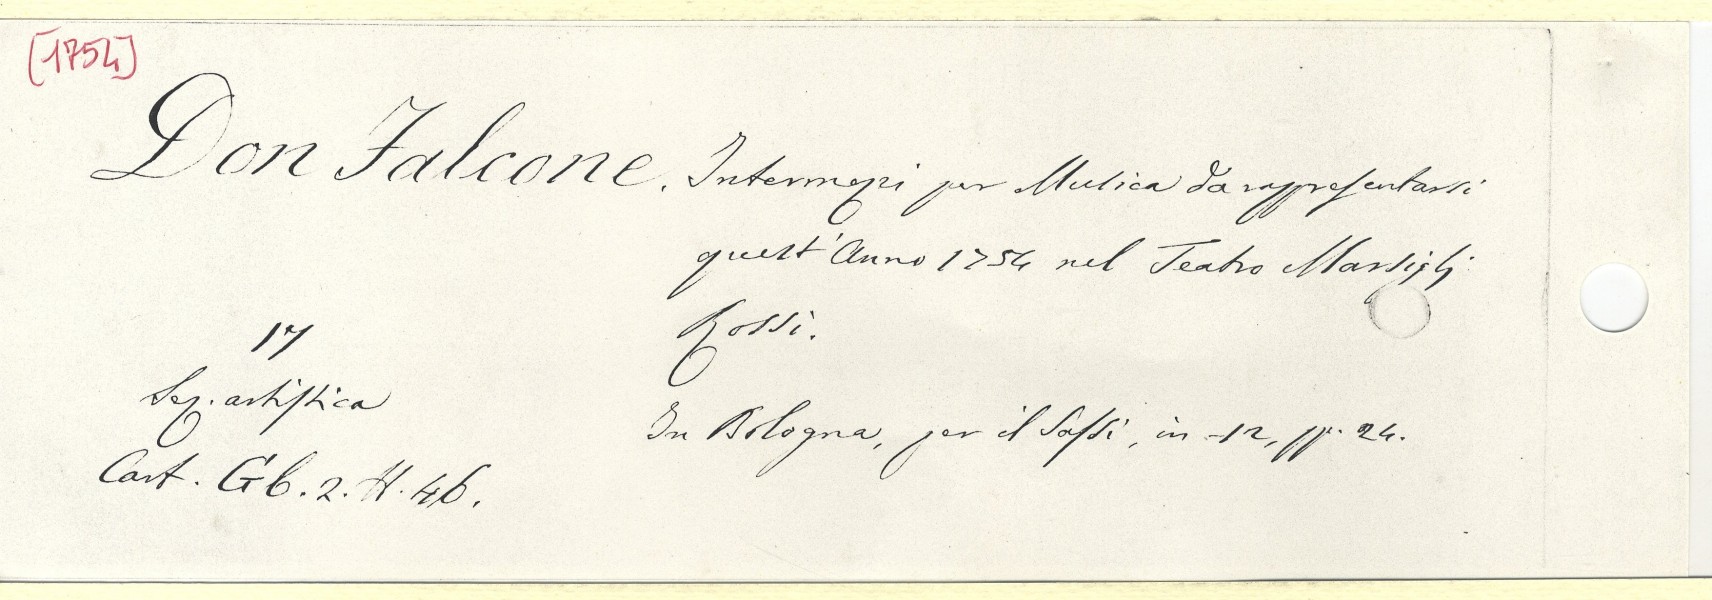 [1754]
Don Falcone. Intermezi per Musica da rappresentarsi
quest'Anno 1754 nel Teatro Marsigli
Rossi.
17
Sez. artistica
Cart. Gb. 2. H. 46.
In Bologna, per il Sassi, in -12, pp. 24.